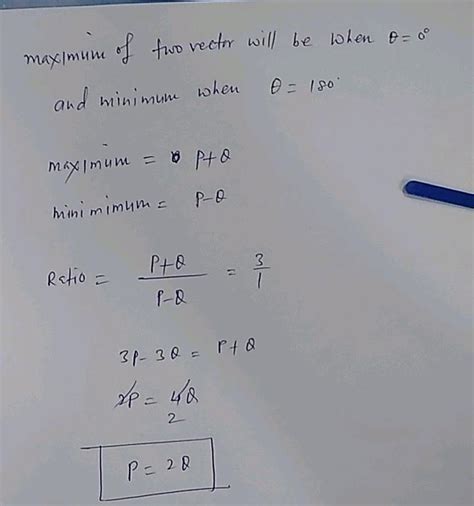 maximum of two vector will be when θ = 0°
and minimum when θ = 180°
maximum = P+Q
minimimum = P-Q
Ratio = P+Q / P-Q = 3 / 1
3P - 3Q = P + Q
2P = 4Q
2
P = 2Q